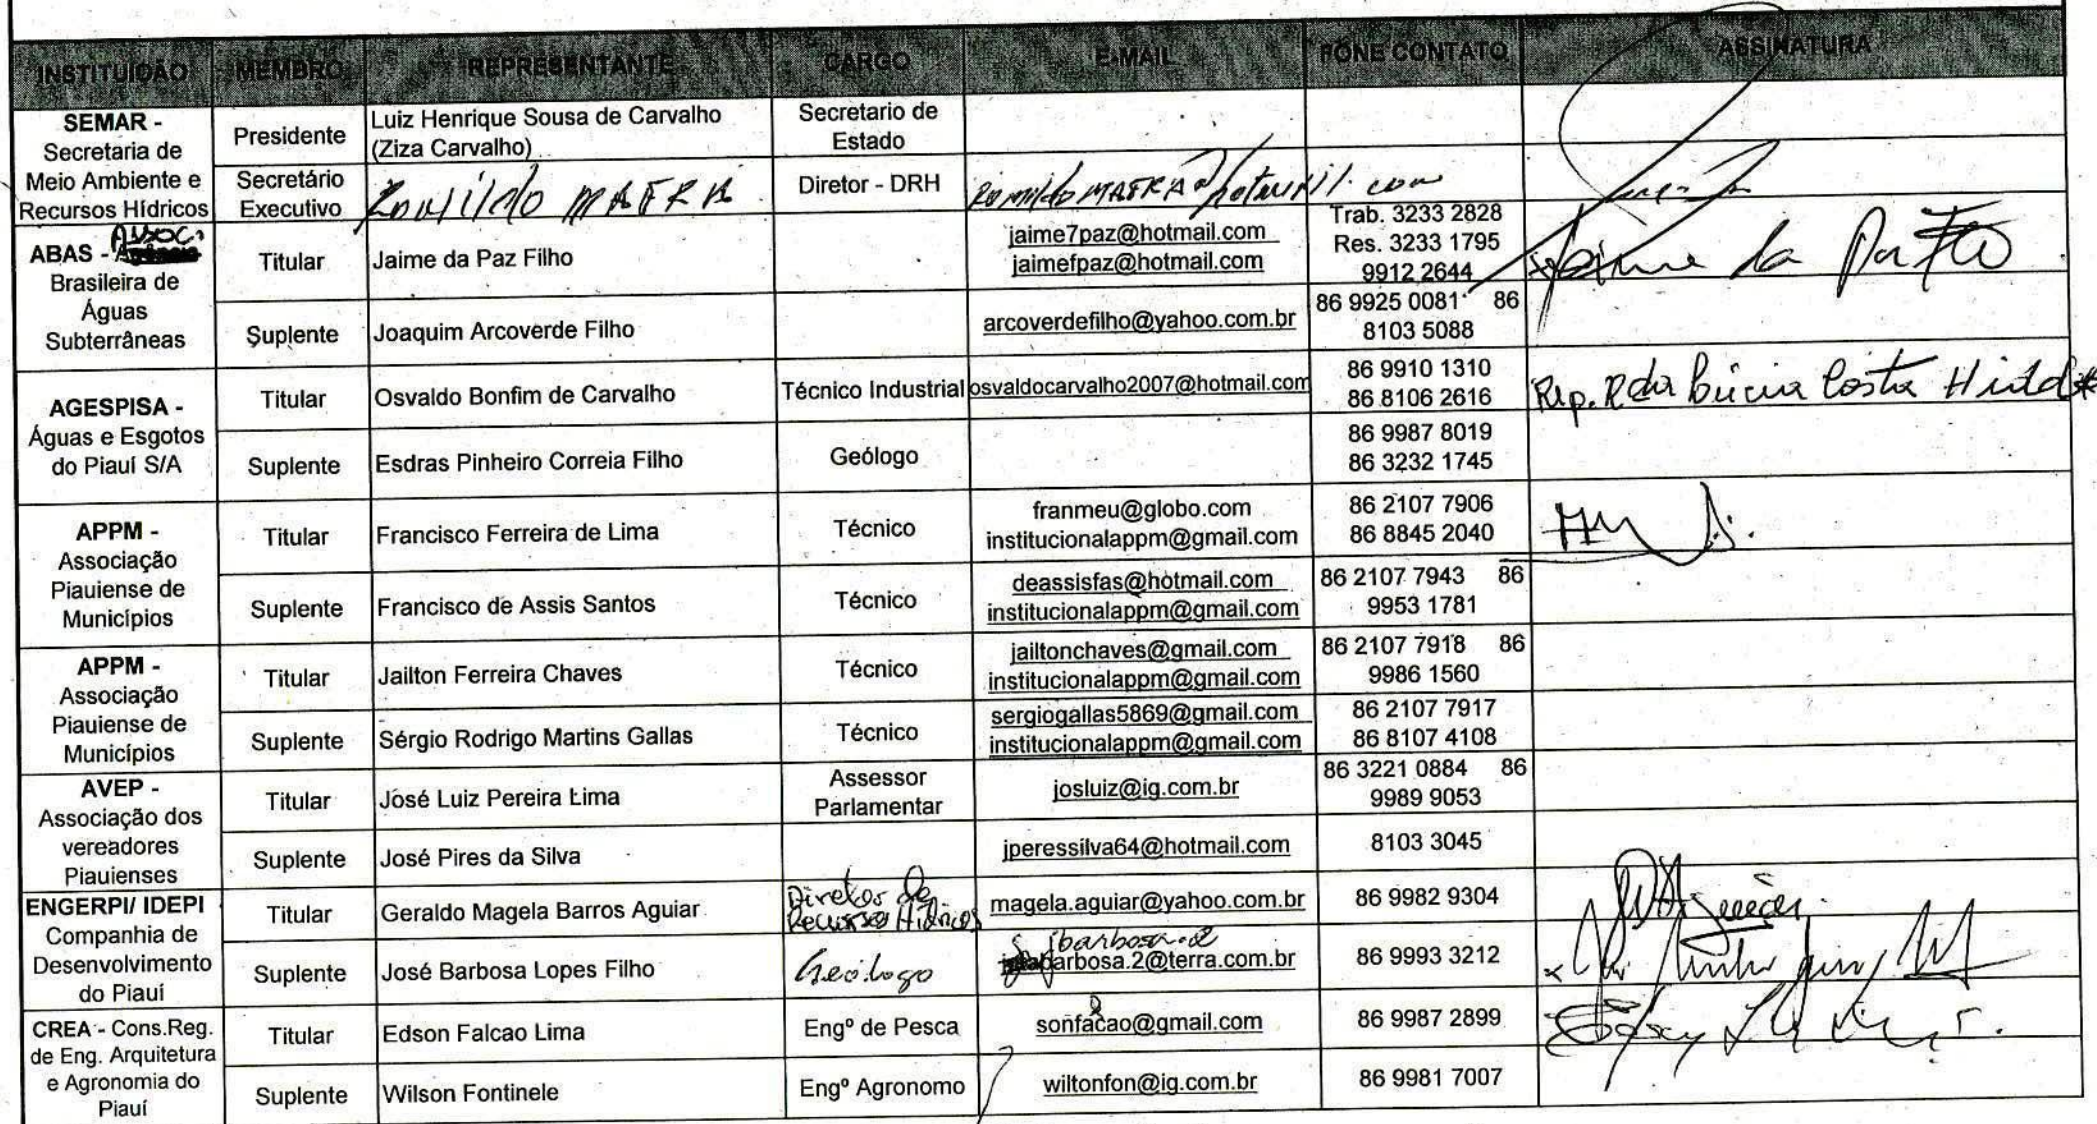 INSTITUIÇÃO MEMBRO REPRESENTANTE CARGO E-MAIL FONE CONTATO ASSINATURA
SEMAR -
Secretaria de
Meio Ambiente e
Recursos Hídricos
Presidente
Luiz Henrique Sousa de Carvalho
(Ziza Carvalho)
Secretario de
Estado
Secretário
Executivo
Romildo MAFRA
Diretor - DRH
RomildoMAFRA@hotmail.com
ABAS - Assoc.
Brasileira de
Águas
Subterrâneas
Titular
Jaime da Paz Filho
jaime7paz@hotmail.com
jaimefpaz@hotmail.com
Trab. 3233 2828
Res. 3233 1795
9912 2644
Jaime da Paz Fo
Suplente
Joaquim Arcoverde Filho
arcoverdefilho@yahoo.com.br
86 9925 0081 86
8103 5088
AGESPISA -
Águas e Esgotos
do Piauí S/A
Titular
Osvaldo Bonfim de Carvalho
Técnico Industrial
osvaldocarvalho2007@hotmail.com
86 9910 1310
86 8106 2616
Rep. Lúcia Costa
Suplente
Esdras Pinheiro Correia Filho
Geólogo
86 9987 8019
86 3232 1745
APPM -
Associação
Piauiense de
Municípios
Titular
Francisco Ferreira de Lima
Técnico
franmeu@globo.com
institucionalappm@gmail.com
86 2107 7906
86 8845 2040
Suplente
Francisco de Assis Santos
Técnico
deassisfas@hotmail.com
institucionalappm@gmail.com
86 2107 7943 86
9953 1781
APPM -
Associação
Piauiense de
Municípios
Titular
Jailton Ferreira Chaves
Técnico
jailtonchaves@gmail.com
institucionalappm@gmail.com
86 2107 7918 86
9986 1560
Suplente
Sérgio Rodrigo Martins Gallas
Técnico
sergiogallas5869@gmail.com
institucionalappm@gmail.com
86 2107 7917
86 8107 4108
AVEP -
Associação dos
vereadores
Piauienses
Titular
José Luiz Pereira Lima
Assessor
Parlamentar
josluiz@ig.com.br
86 3221 0884 86
9989 9053
Suplente
José Pires da Silva
jperessilva64@hotmail.com
8103 3045
ENGERPI/ IDEPI
Companhia de
Desenvolvimento
do Piauí
Titular
Geraldo Magela Barros Aguiar
Diretor de
Recursos Hídricos
magela.aguiar@yahoo.com.br
86 9982 9304
Suplente
José Barbosa Lopes Filho
Geólogo
jbarbosa.2
barbosa.2@terra.com.br
86 9993 3212
CREA - Cons.Reg.
de Eng. Arquitetura
e Agronomia do
Piauí
Titular
Edson Falcao Lima
Engº de Pesca
sonfacao@gmail.com
86 9987 2899
Suplente
Wilson Fontinele
Engº Agronomo
wiltonfon@ig.com.br
86 9981 7007